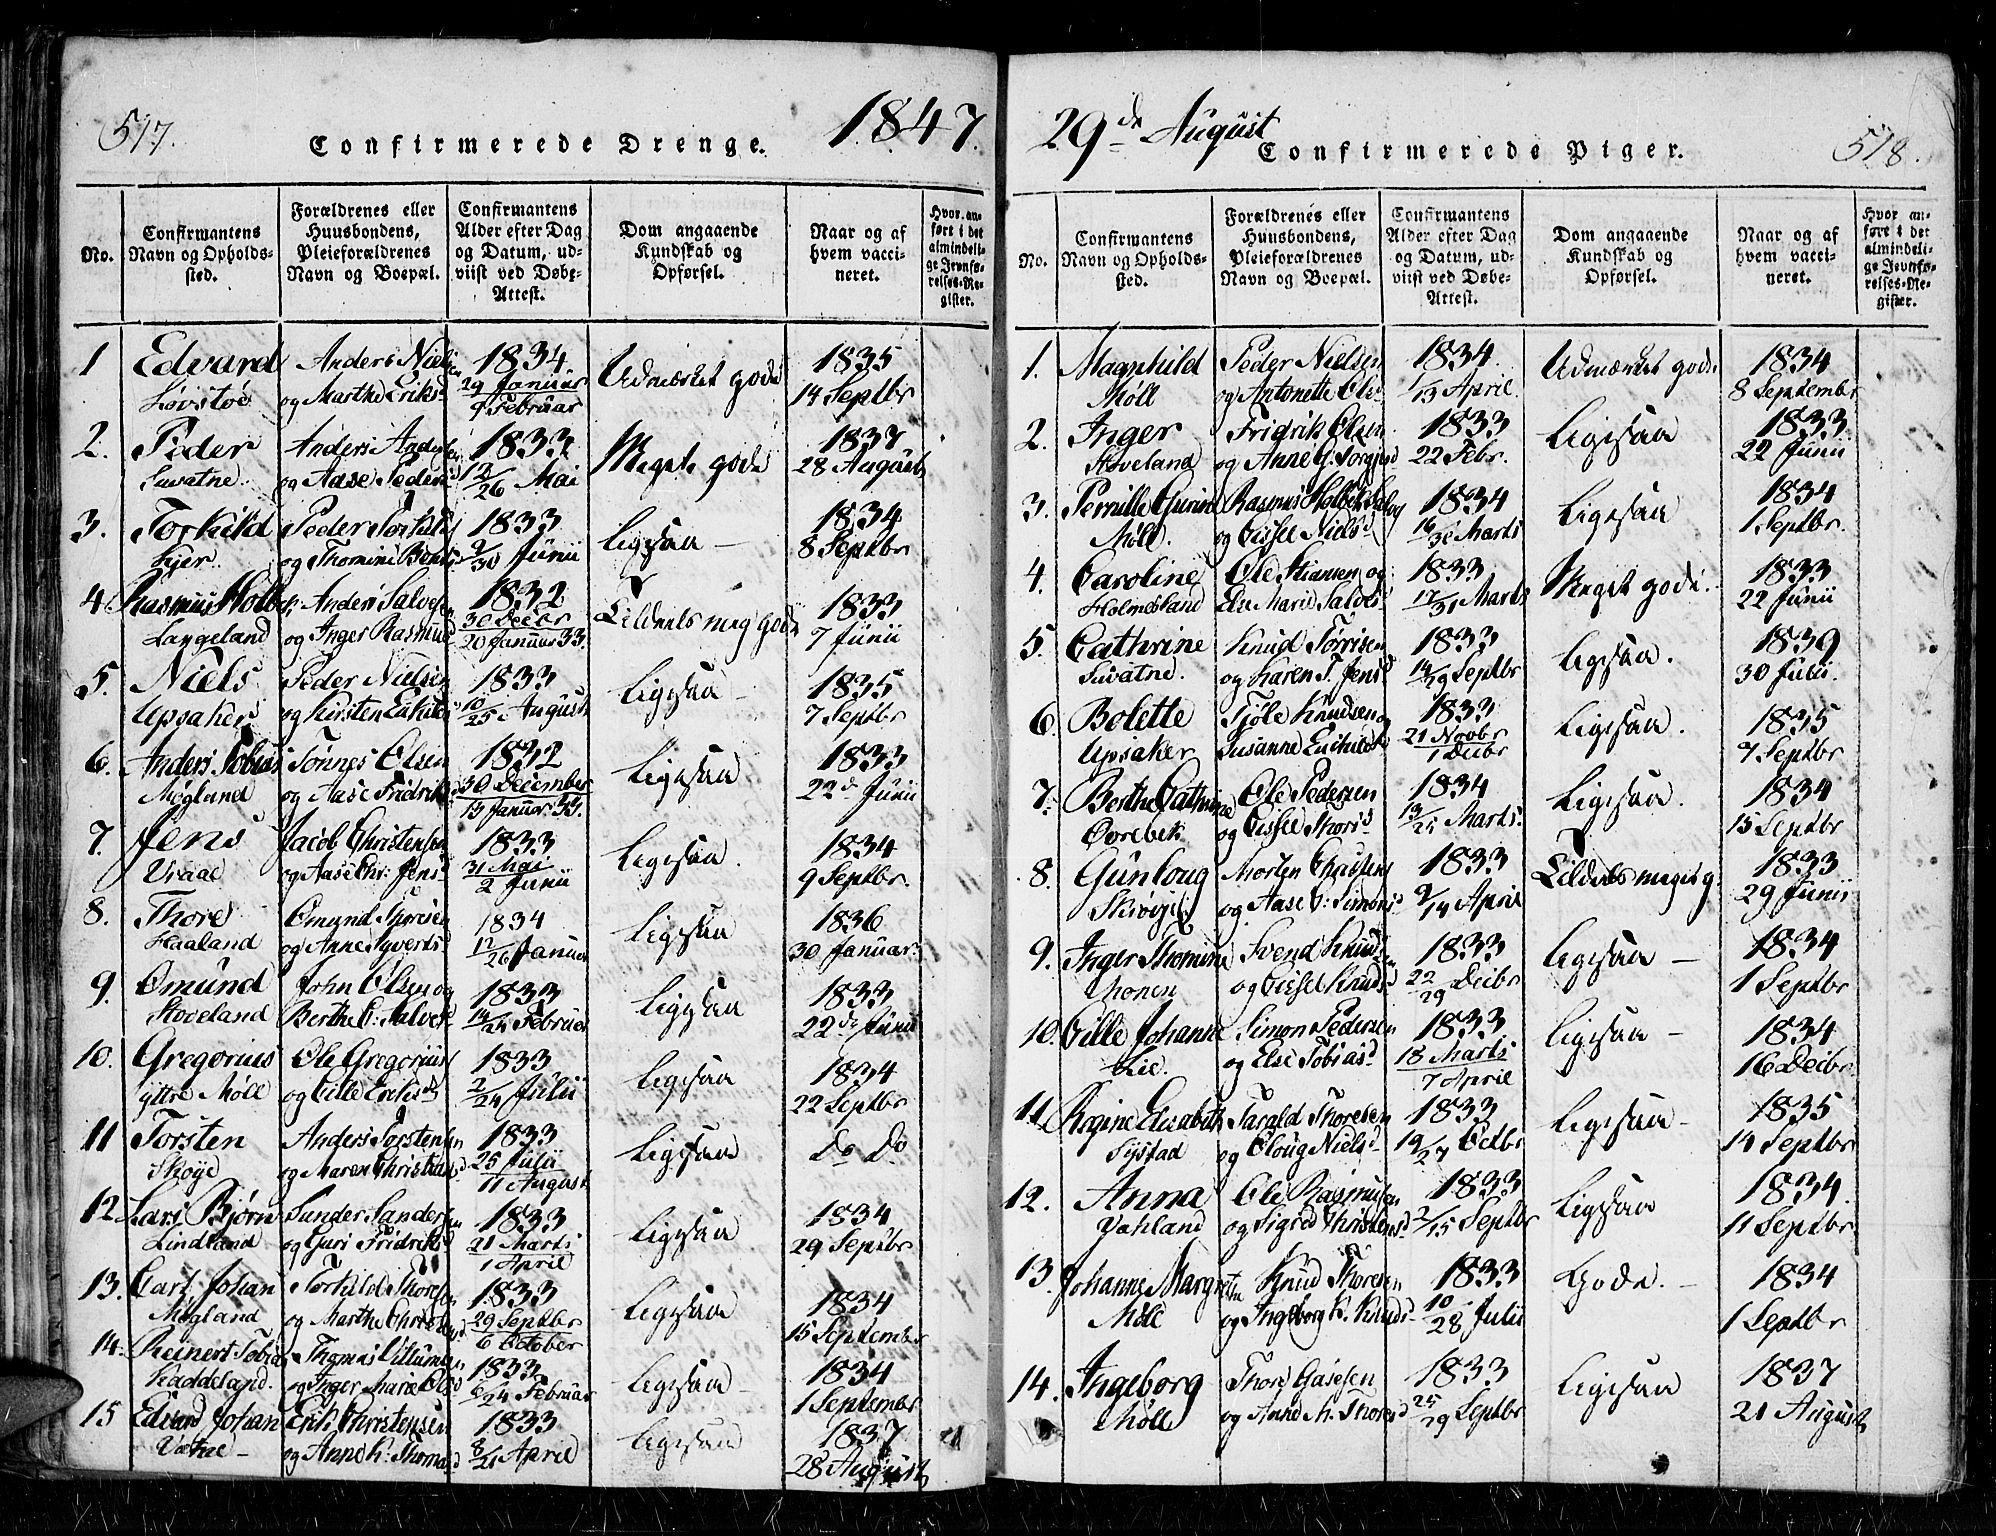 517.
Confirmerede Drenge.
1847.
No.
Confirmantens Navn og Opholdssted.
Forældrenes eller Huusbondens, Pleieforældrenes Navn og Boepæl.
Confirmantens Alder efter Dag og Datum, udviist ved Døbe-Attest.
Dom angaaende Kundskab og Opførsel.
Naar og af hvem vaccineret.
Hvor anført i det almindelige Jevnførelses-Register.
1 Edvard Anders Nielsen 1834 Udmærket gode 1835
Løvstøe og Marthe Eriksd 29 Januar 9 Februar 14 Septbr
2. Peder Anders Andersen 1833 Meget gode 1837
Suvatne og Aase Peders 12/26 Mai 28 August
3. Torkild Peder Torkilds 1833 Ligesaa 1834
Kjer. og Thomine Bends 2/30 Junii 8 Septbr
4 Rasmus Holbek Anders Salvesen 1832 Tildeels meg gode 1833
Langeland og Inger Rasmusd 30 Decbr 20 Januar 33. 7 Junii
5. Niels Peder Nielsen 1833 Ligesaa 1835
Upsaker og Kirsten 10/25 August 7 Septbr
6. Anders Tobias Tønnes Olsen 1832 Ligesaa 1833
Møgland og Aase Fridriks 30 December 13 Januar 33. 22d Junii
7. Jens Jacob Christensen 1833 Ligesaa. 1834
Vraae og Aase Chr: Jens 31 Mai 2 Junii 9 Septbr.
8. Thore Omund Thoresen 1834 Ligesaa 1836
Haaland og Anne Syverts 12/26 Januar 30 Januar.
9. Omund John Olsen og 1833 Ligesaa 1833
Skoveland Berthe O: Salves 14/24 Februar 22de Junii
10. Gregorius Ole Gregorius 1833 Ligesaa 1834
yttre Møll og Cille Eriksd 2/24 Julii 22 Septbr
11 Torsten Anders Torstensen 1833 Ligesaa Do Do
Skoye og Maren Christians 25 Julii 11 August
12. Lars Bjørn Sander Sandersen 1833 Ligesaa 1834
Lindland og Guri Fridriks 21 Marts 1 April 29 Septbr
13. Carl Johan Torkild Thoresen 1833 Ligesaa 1834
Møgland og Marthe 29 Septbr 6 October 15 September
14. Reinert Tobias Thomas 1833 Ligesaa 1834
Kaddeland. og Inger Marie Olsd 6/24 Februar 1 September
15 Edvard Johan Erik Christensen 1833 Ligesaa 1837
Vatne og Anne K: Thomasd 8/21 April 28 August
29de August
Confirmerede Piger.
518.
No.
Confirmantens Navn og Opholdssted.
Forældrenes eller Huusbondens, Pleieforældrenes Navn og Boepæl.
Confirmantens Alder efter Dag og Datum, udviist ved Døbe-Attest.
Dom angaaende Kundskab og Opførsel.
Naar og af hvem vaccineret.
Hvor anført i det almindelige Jevnførelses-Register.
1. Magnhild Peder Nielsen 1834. Udmærket gode. 1834
Møll og Antonette Ols 1/13 April. 8 September
2. Inger Fridrik Olsen 1833 Ligesaa 1833
Skoveland og Anne G. Torgusd 22 Febr. 22 Junii
3. Pernille Gurine Rasmus Holbek Salv 1834 Ligesaa 1834
Møll. og Cissel Niels 16/31 Marts 1 Septbr.
4. Caroline Ole Stiansen og 1833 Meget gode. 1833
Holmesland Else Marie Salves 17/31 Marts 22 Junii
5. Cathrine Knud Torrisen 1833 Ligesaa. 1839
Suvatne. og Karen T. Jensd 14/29 Septbr 30 Julii.
6. Bolette Tjøle Knudsen og 1833 Ligesaa. 1835
Upsaker Susanne 21 Novbr 1 Decbr 7 Septbr
7. Berthe Cathrine Ole Pedersen 1834 Ligesaa. 1834
Ovrebek og Cissel Thoris 13/25 Marts. 15 Septbr
8. Gunloug Morten Clausen 1833 Tildeels meget g. 1833
og Aase C: Simons 9/14 April 29 Junii
9. Inger Thomine Svend Knudsen 1833 Ligesaa 1834
Monen og Cissel Knudsd 22/29 Decbr 1 Septbr
10. Cille Johanne Simon Pedersen 1833 Ligesaa 1834
Lie. og Else Tobiasd 18 Marts 7 April 16 Decbr.
11. Regine Elisabeth Tarald Thoresen 1833 Ligesaa 1835
Systad og Oloug Nielsd 19/27 Octbr 14 Septbr
12. Anna Ole Rasmusen 1833 Ligesaa 1834.
Vahland og Sigred Christensd 2/15 Septbr 11 Septbr
13. Johanne Margrete Knud Thoresen 1833 Gode. 1834
Møll og Ingeborg K. Knuds 10/28 Julii 1 Septbr
14. Ingeborg Thore Gasesen 1833 Ligesaa 1837
Møll og Anne M. Thoresd 25/29 Septbr 21 August